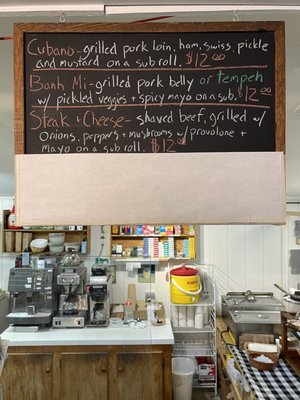 Cubano-grilled pork loin, ham, swiss, pickle
and mustard on a sub roll. $12.00
Banh Mi-grilled pork belly or tempeh
w/ pickled veggies + spicy mayo on a sub. $12.00
Steak + Cheese- shaved beef, grilled w/
Onions, peppers + mushrooms w/ provolone +
Mayo on a sub roll. $12.00